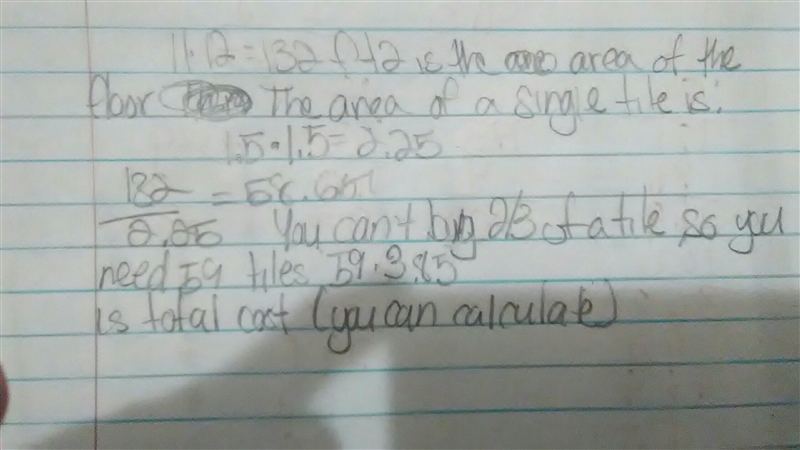 11·12=132 ft2 is the area of the
floor The area of a single tile is:
1.5·1.5=2.25
132
= 58.
2.25 You can't buy 2/3 of a tile so you
need 59 tiles 59·3.85
is total cost (you can calculate)